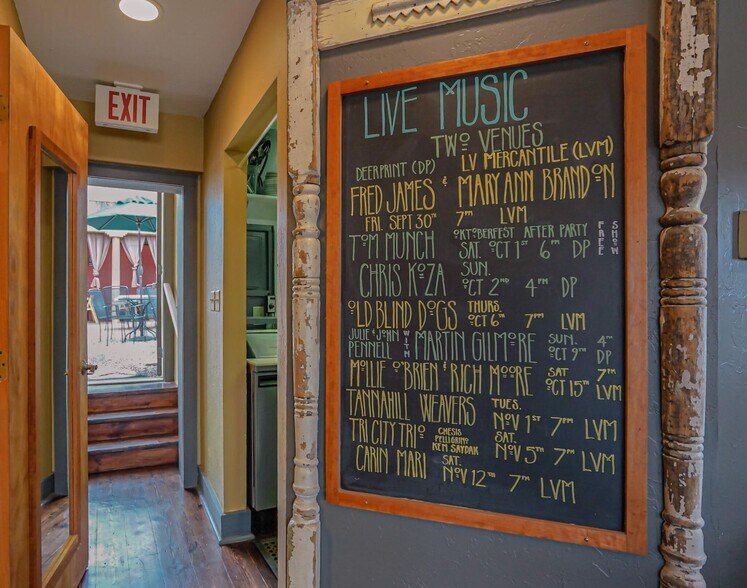 EXIT
LIVE MUSIC
TWO VENUES
DEERPRINT (DP)
LV MERCANTILE (LVM)
FRED JAMES & MARY ANN BRANDON
FRI. SEPT 30TH 7PM LVM
TOM MUNCH OKTOBERFEST AFTER PARTY
SAT. OCT 1ST 6PM DP
FREE SHOW
CHRIS KOZA SUN.
OCT 2ND 4PM DP
OLD BLIND DOGS THURS.
OCT 6TH 7PM LVM
JULIE & JOHN
PENNELL WITH MARTIN GILMORE SUN. 4PM
OCT 9TH DP
MOLLIE O'BRIEN & RICH MOORE SAT 7PM
OCT 15TH LVM
TANNAHILL WEAVERS TUES.
NOV 1ST 7PM LVM
TRI CITY TRIO CHESIS
PELLIGRINO
KEN SAYDAK
SAT.
NOV 5TH 7PM LVM
CARIN MARI SAT.
NOV 12TH 7PM LVM